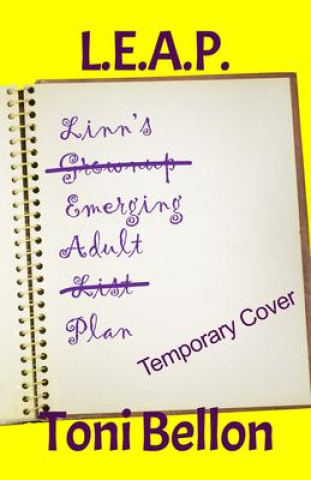 L.E.A.P.
Linn's
Grownup
Emerging
Adult
List
Plan
Temporary Cover
Toni Bellon